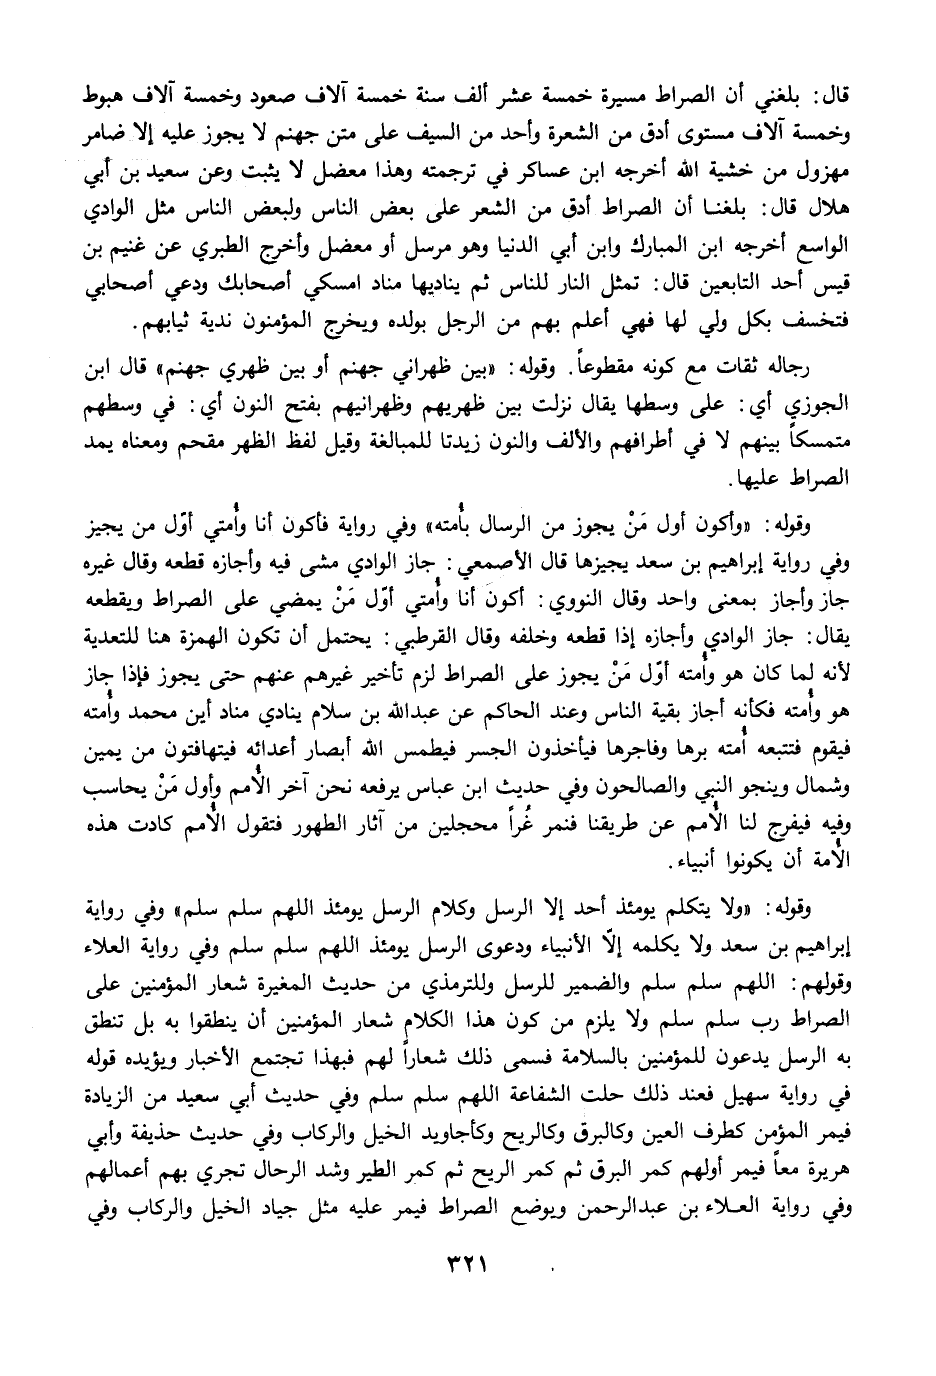 قال: بلغني أن الصراط مسيرة خمسة عشر ألف سنة خمسة آلاف صعود وخمسة آلاف هبوط
وخمسة آلاف مستوى أدق من الشعرة وأحد من السيف على متن جهنم لا يجوز عليه إلا ضامر
مهزول من خشية الله أخرجه ابن عساكر في ترجمته وهذا معضل لا يثبت وعن سعيد بن أبي
هلال قال: بلغنا أن الصراط أدق من الشعر على بعض الناس ولبعض الناس مثل الوادي
الواسع أخرجه ابن المبارك وابن أبي الدنيا وهو مرسل أو معضل وأخرج الطبري عن غنيم بن
قيس أحد التابعين قال: تمثل النار للناس ثم يناديها مناد امسكي أصحابك ودعي أصحابي
فتخسف بكل ولي لها فهي أعلم بهم من الرجل بولده ويخرج المؤمنون ندية ثيابهم.
رجاله ثقات مع كونه مقطوعاً. وقوله: «بين ظهراني جهنم أو بين ظهري جهنم» قال ابن
الجوزي أي: على وسطها يقال نزلت بين ظهريهم وظهرانيهم بفتح النون أي: في وسطهم
متمسكاً بينهم لا في أطرافهم والألف والنون زيدتا للمبالغة وقيل لفظ الظهر مقحم ومعناه يمد
الصراط عليها.
وقوله: «وأكون أول مَنْ يجوز من الرسال بأُمته» وفي رواية فأكون أنا وأُمتي أوّل من يجيز
وفي رواية إبراهيم بن سعد يجيزها قال الأصمعي: جاز الوادي مشى فيه وأجازه قطعه وقال غيره
جاز وأجاز بمعنى واحد وقال النووي: أكون أنا وأُمتي أوّل مَنْ يمضي على الصراط ويقطعه
يقال: جاز الوادي وأجازه إذا قطعه وخلفه وقال القرطبي: يحتمل أن تكون الهمزة هنا للتعدية
لأنه لما كان هو وأُمته أوّل مَنْ يجوز على الصراط لزم تأخير غيرهم عنهم حتى يجوز فإذا جاز
هو وأُمته فكأنه أجاز بقية الناس وعند الحاكم عن عبدالله بن سلام ينادي مناد أين محمد وأُمته
فيقوم فتتبعه أُمته برها وفاجرها فيأخذون الجسر فيطمس الله أبصار أعدائه فيتهافتون من يمين
وشمال وينجو النبي والصالحون وفي حديث ابن عباس يرفعه نحن آخر الأُمم وأول مَنْ يحاسب
وفيه فيفرج لنا الأُمم عن طريقنا فنمر غُراً محجلين من آثار الطهور فتقول الأُمم كادت هذه
الأُمة أن يكونوا أنبياء.
وقوله: «ولا يتكلم يومئذ أحد إلا الرسل وكلام الرسل يومئذ اللهم سلم سلم» وفي رواية
إبراهيم بن سعد ولا يكلمه إلاّ الأنبياء ودعوى الرسل يومئذ اللهم سلم سلم وفي رواية العلاء
وقولهم: اللهم سلم سلم والضمير للرسل وللترمذي من حديث المغيرة شعار المؤمنين على
الصراط رب سلم سلم ولا يلزم من كون هذا الكلام شعار المؤمنين أن ينطقوا به بل تنطق
به الرسل يدعون للمؤمنين بالسلامة فسمى ذلك شعاراً لهم فبهذا تجتمع الأخبار ويؤيده قوله
في رواية سهيل فعند ذلك حلت الشفاعة اللهم سلم سلم وفي حديث أبي سعيد من الزيادة
فيمر المؤمن كطرف العين وكالبرق وكالريح وكأجاويد الخيل والركاب وفي حديث حذيفة وأبي
هريرة معاً فيمر أولهم كمر البرق ثم كمر الريح ثم كمر الطير وشد الرحال تجري بهم أعمالهم
وفي رواية العلاء بن عبدالرحمن ويوضع الصراط فيمر عليه مثل جياد الخيل والركاب وفي
٣٢١